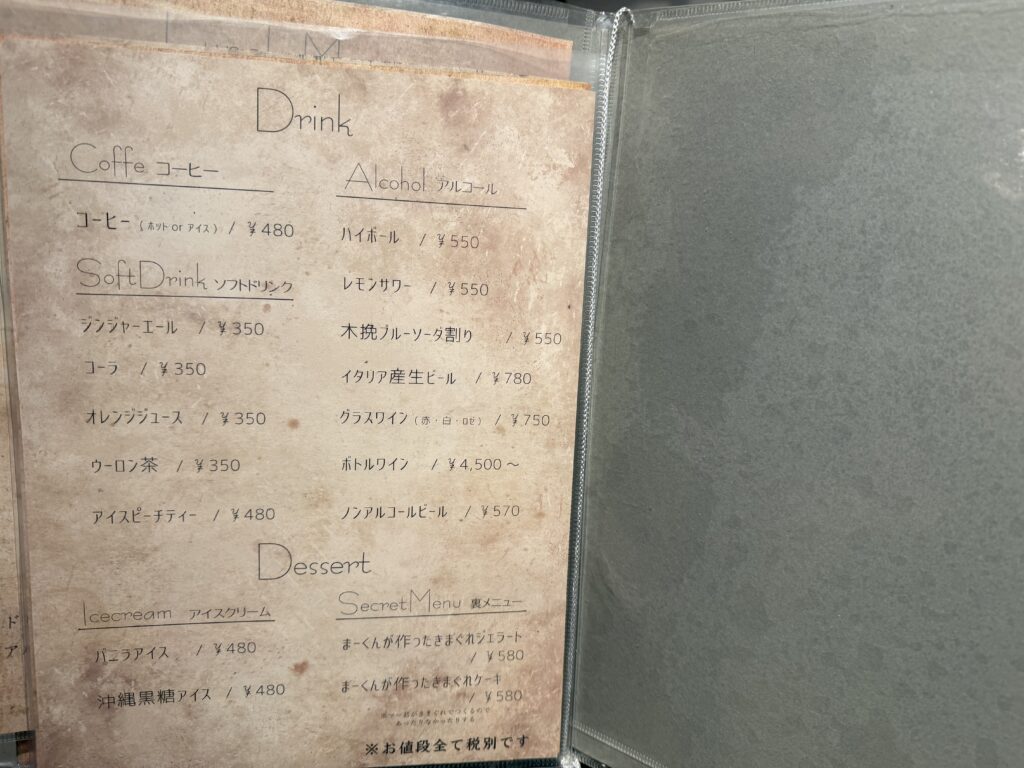 Drink
Coffe コーヒー
コーヒー (ホット or アイス) / ¥480
SoftDrink ソフトドリンク
ジンジャーエール / ¥350
コーラ / ¥350
オレンジジュース / ¥350
ウーロン茶 / ¥350
アイスピーチティー / ¥480
Alcohol アルコール
ハイボール / ¥550
レモンサワー / ¥550
木挽ブルーソーダ割り / ¥550
イタリア産生ビール / ¥780
グラスワイン (赤・白・ロゼ) / ¥750
ボトルワイン / ¥4,500～
ノンアルコールビール / ¥570
Dessert
Icecream アイスクリーム
バニラアイス / ¥480
沖縄黒糖アイス / ¥480
SecretMenu 裏メニュー
まーくんが作ったきまぐれジェラート
/ ¥580
まーくんが作ったきまぐれケーキ
/ ¥580
あったりなかったりする
※お値段全て税別です